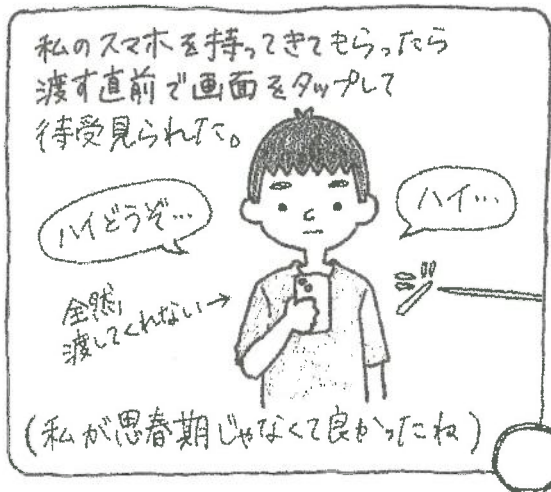 私のスマホを持ってきてもらったら
渡す直前で画面をタップして
待受見られた。
ハイどうぞ…
ハイ…
全然
渡してくれない→
ジー
(私が思春期じゃなくて良かったね)